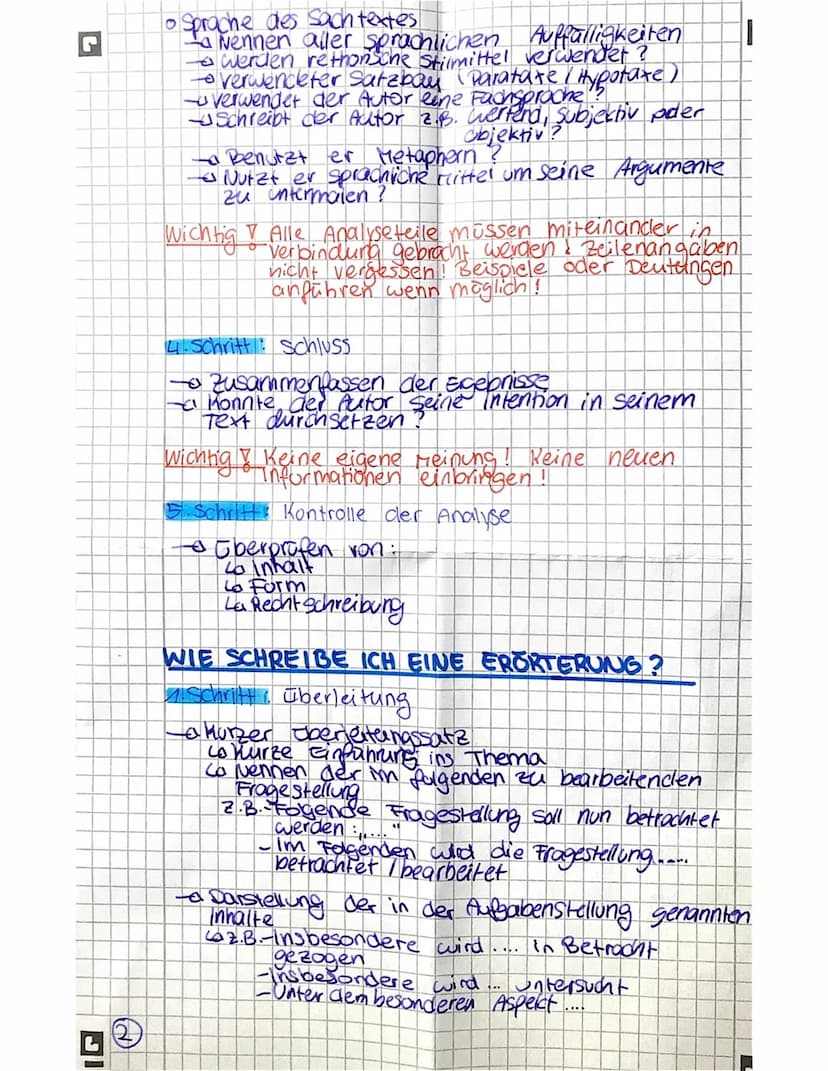 o Sprache des Sachtextes
→ Nennen aller sprachlichen Auffälligkeiten
→ werden rethorische Stilmittel verwendet?
→ verwendeter Satzbau (Parataxe / Hypotaxe)
→ verwendet der Autor eine Fachsprache?
→ Schreibt der Autor z.B. wertend, subjektiv oder
objektiv?
→ Benutzt er Metaphern?
→ Nutzt er sprachliche Mittel um seine Argumente
zu untermalen?
Wichtig! Alle Analyseteile müssen miteinander in
verbindung gebracht werden! Zeilenangaben
nicht vergessen! Beispiele oder Deutungen
anführen wenn möglich!
4. Schritt: Schluss
→ Zusammenfassen der Egebnisse
→ Konnte der Autor seine Intention in seinem
Text durchsetzen?
Wichtig! Keine eigene Meinung! Keine neuen
Informationen einbringen!
5. Schritt: Kontrolle der Analyse
→ Überprüfen von:
↳ Inhalt
↳ Form
↳ Rechtschreibung
WIE SCHREIBE ICH EINE ERÖRTERUNG?
1. Schritt: Überleitung
→ Kurzer Überleitungssatz
↳ Kurze Einführung ins Thema
↳ Nennen der im folgenden zu bearbeitenden
Fragestellung
z.B. - Folgende Fragestellung soll nun betrachtet
werden: „...."
- Im Folgenden wird die Fragestellung.....
betrachtet / bearbeitet
→ Darstellung der in der Aufgabenstellung genannten
Inhalte
↳ z.B. - Insbesondere wird .... in Betracht
gezogen
- Insbesondere wird ... untersucht
- Unter dem besonderen Aspekt ....
2